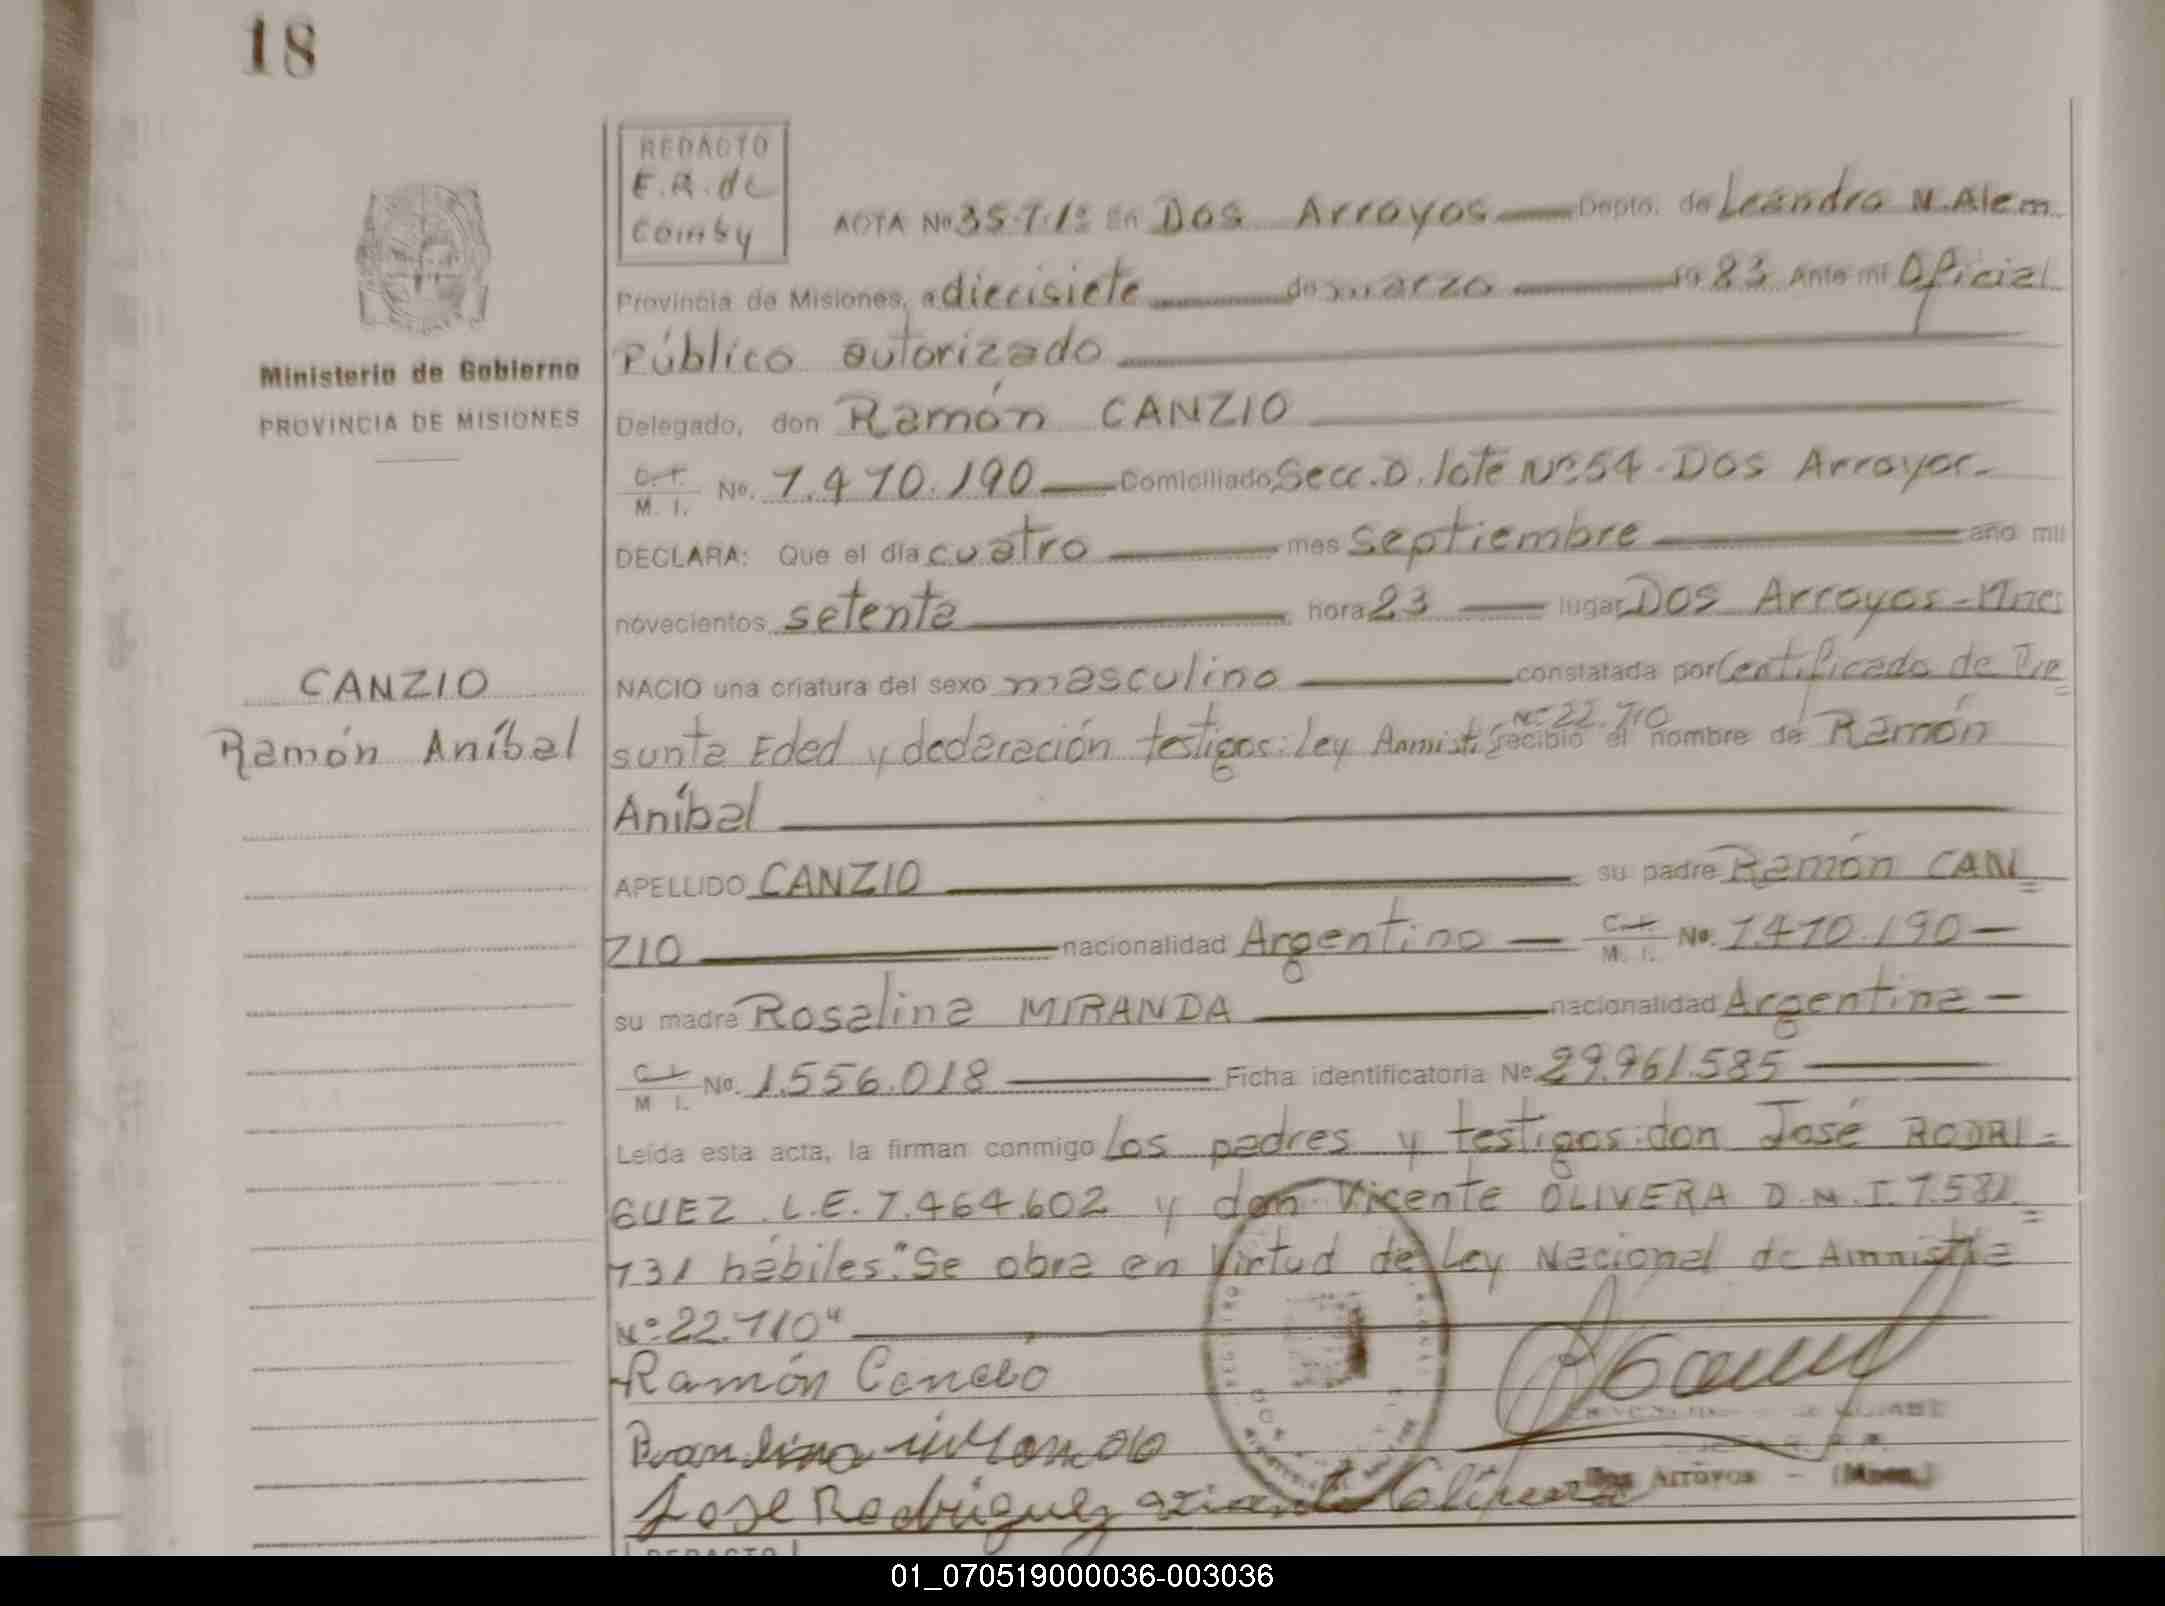 18
REDACTO
E.R. de
Comby
ACTA No 35-T.1º En Dos Arroyos Depto. de Leandro N. Alem.
Provincia de Misiones, a diecisiete de marzo 19 83 Ante mi Oficial
Público autorizado
Ministerio de Gobierno
PROVINCIA DE MISIONES
Delegado, don Ramón CANZIO
C.I.
M. I. No. 7.470.190 Domiciliado Secc. D. lote Nº 54 - Dos Arroyos.-
DECLARA: Que el día cuatro mes septiembre año mil
novecientos setenta hora 23 lugar Dos Arroyos - Mnes
CANZIO
Ramón Aníbal
NACIO una criatura del sexo masculino constatada por Certificado de Pre
sunta Edad y declaración testigos: Ley Amnistí Nº 22.710 recibió el nombre de Ramón
Aníbal
APELLIDO CANZIO su padre Ramón CAN
ZIO nacionalidad Argentino C.I. M. I. No. 7.470.190 -
su madre Rosalina MIRANDA nacionalidad Argentina -
C.I.
M. I. No. 1.556.018 Ficha identificatoria Nº 29.961.585
Leída esta acta, la firman conmigo los padres y testigos: don José RODRI=
GUEZ. L.E. 7.464.602 y don Vicente OLIVERA D.N.I. 7.581
731 hábiles. "Se obra en Virtud de Ley Nacional de Amnistía
Nº 22.710"
Ramón
Jose Rodriguez
Dos Arroyos - (Mnes.)
REDACTO
01_070519000036-003036